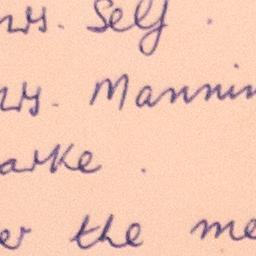 Mrs. Self.
Mrs. Mannin
arke.
er the me